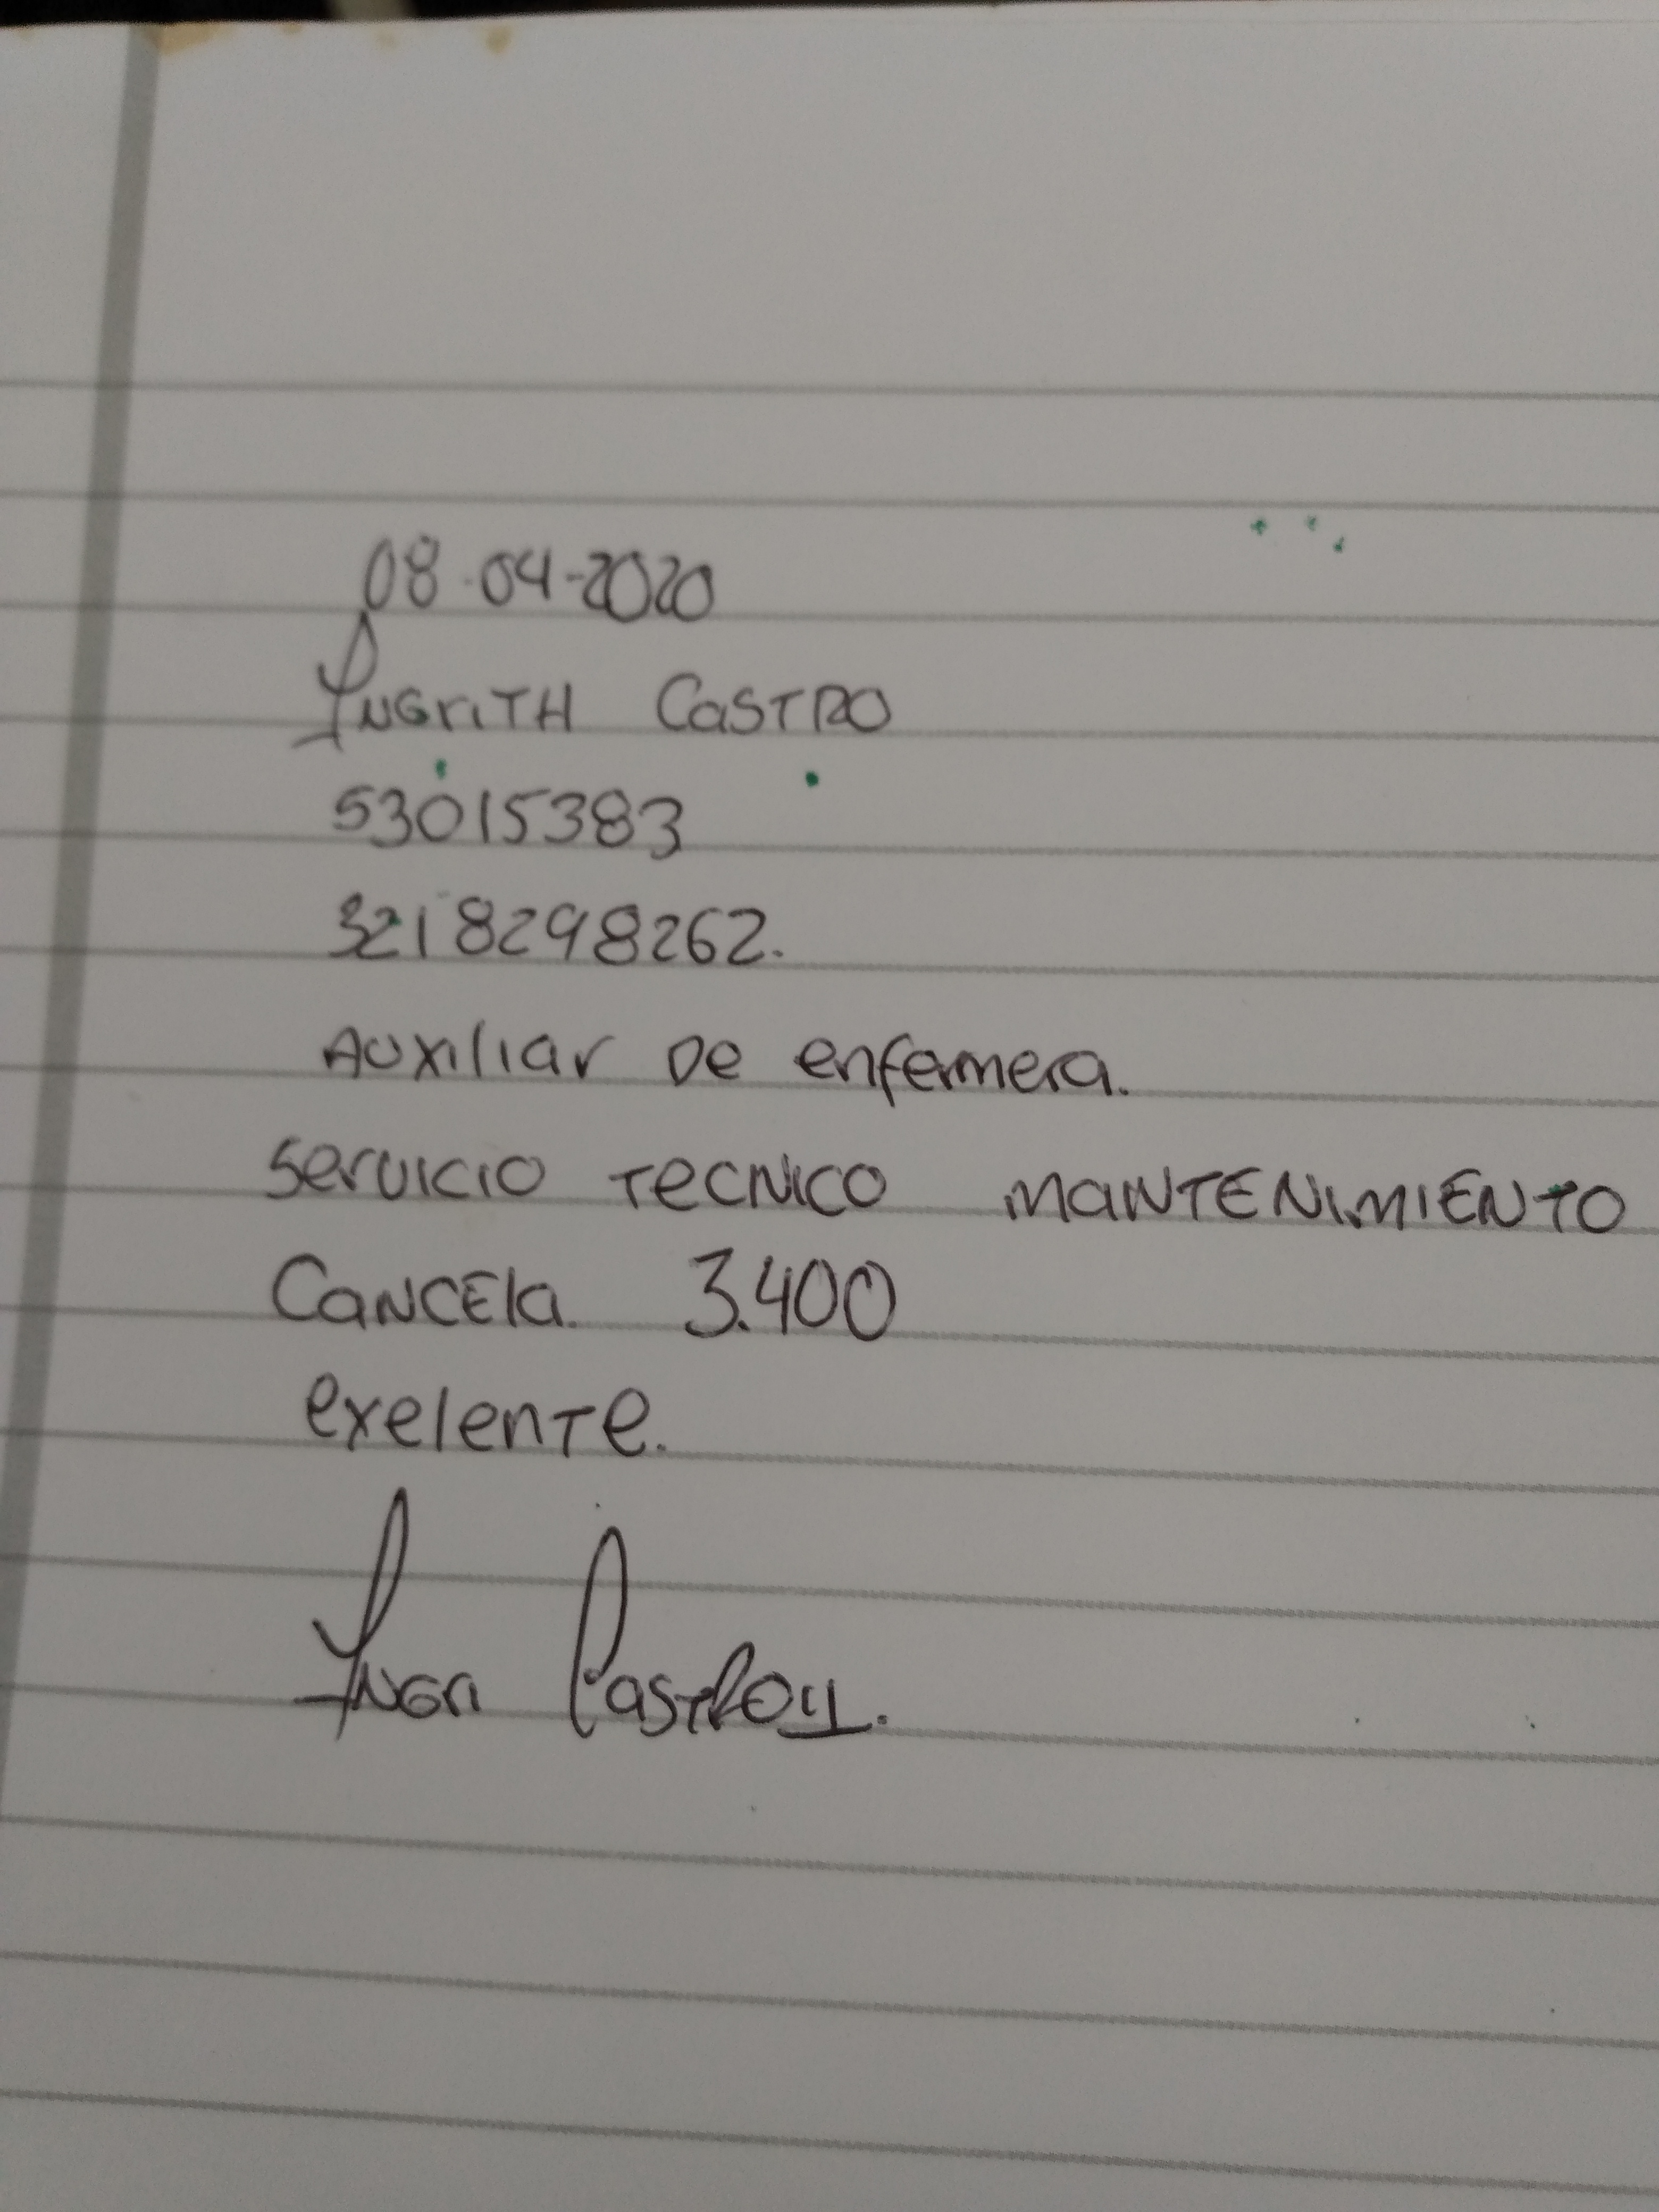 08-04-2020
YNGriTH CaSTRO
53015383
3218298262.
AUXiliar De enfermera.
Servicio TecNico MaNTENiMIENTO
CaNCEla. 3.400
exelenTe.
YNGri CasTRoy.